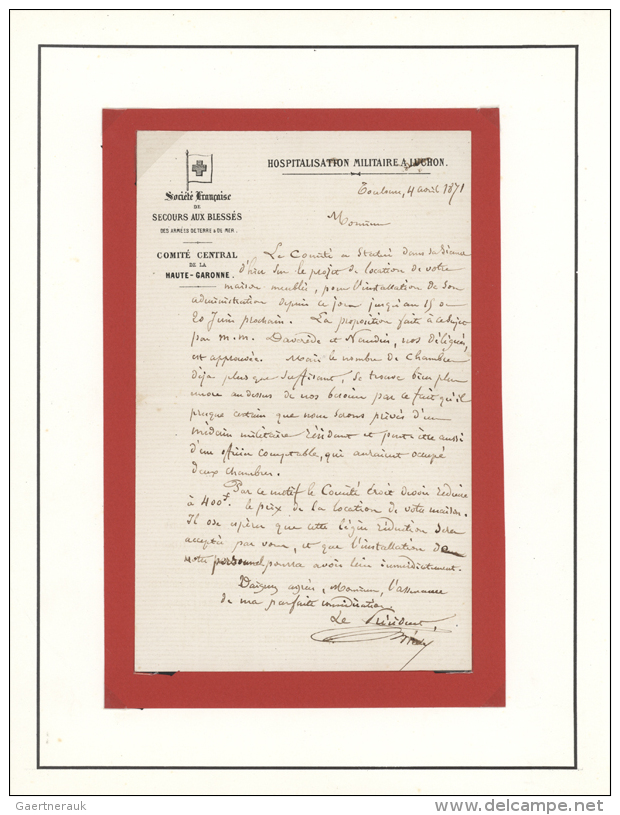 HOSPITALISATION MILITAIRE A LUCHON.
Toulouse, 4 avril 1871
Société Française
DE
SECOURS AUX BLESSÉS
DES ARMÉES DE TERRE & DE MER.
COMITÉ CENTRAL
DE LA
HAUTE-GARONNE.
Monsieur
Le Comité a Statué dans sa Séance
d'hier sur le projet de location de votre
maison meublée, pour l'installation de son
administration depuis ce jour jusqu'au 15 ou
20 Juin prochain. La proposition faite à ce sujet
par M.M. et Naudin, nos délégués,
est approuvée. Mais le nombre de chambres
déja plus que suffisant, se trouve bien plus
encore au dessus de nos besoins par ce fait qu'il
presque certain que nous serons privés d'un
médecin militaire résidant et peut être aussi
d'un officier comptable, qui auraient occupé
deux chambres.
Par ce motif le Comité croit devoir réduire
à 400f. le prix de la location de votre maison.
Il ose espérer que cette légère réduction sera
acceptée par vous, et que l'installation de
notre personnel pourra avoir lieu immédiatement.
Daignez agréer, Monsieur, l'assurance
de ma parfaite considération
Le Président,
Gaertnerauk
delcampe.net